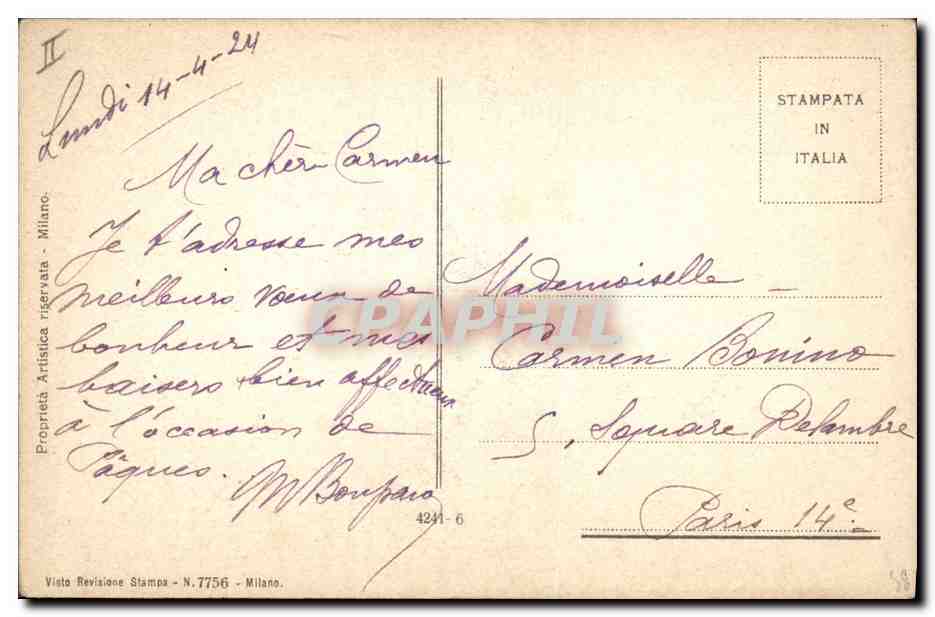 II
Lundi 14-4-24
Ma chère Carmen
Je t'adresse mes
meilleurs voeux de
bonheur et mes
baisers bien affectueux
à l'occasion de
Pâques.
STAMPATA
IN
ITALIA
Mademoiselle
Carmen Bonino
5, Square Delambre
Paris 14e
Proprietà Artistica riservata - Milano.
4241-6
Visto Revisione Stampa - N. 7756 - Milano.
CPAPHIL